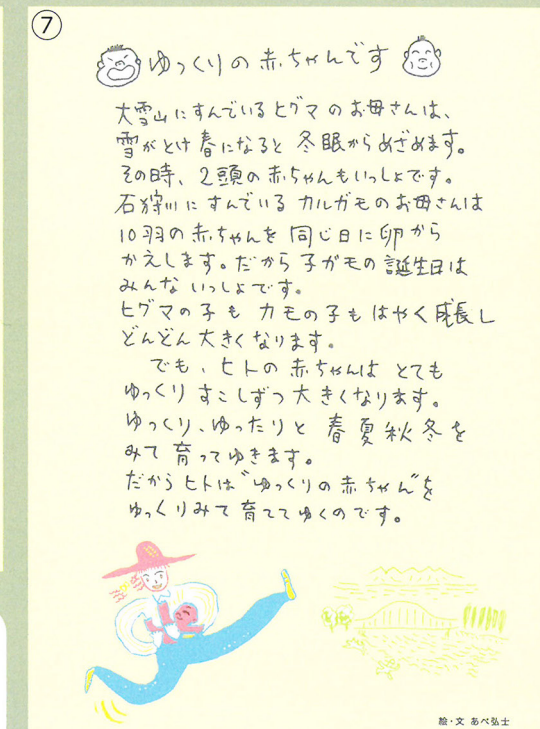 ⑦
ゆっくりの赤ちゃんです
大雪山にすんでいるヒグマのお母さんは、
雪がとけ春になると冬眠からめざめます。
その時、2頭の赤ちゃんもいっしょです。
石狩川にすんでいるカルガモのお母さんは
10羽の赤ちゃんを同じ日に卵から
かえします。だから子ガモの誕生日は
みんないっしょです。
ヒグマの子もカモの子もはやく成長し
どんどん大きくなります。
でも、ヒトの赤ちゃんはとても
ゆっくりすこしずつ大きくなります。
ゆっくり、ゆったりと春夏秋冬を
みて育ってゆきます。
だからヒトは"ゆっくりの赤ちゃん"を
ゆっくりみて育ててゆくのです。
絵・文 あべ弘士